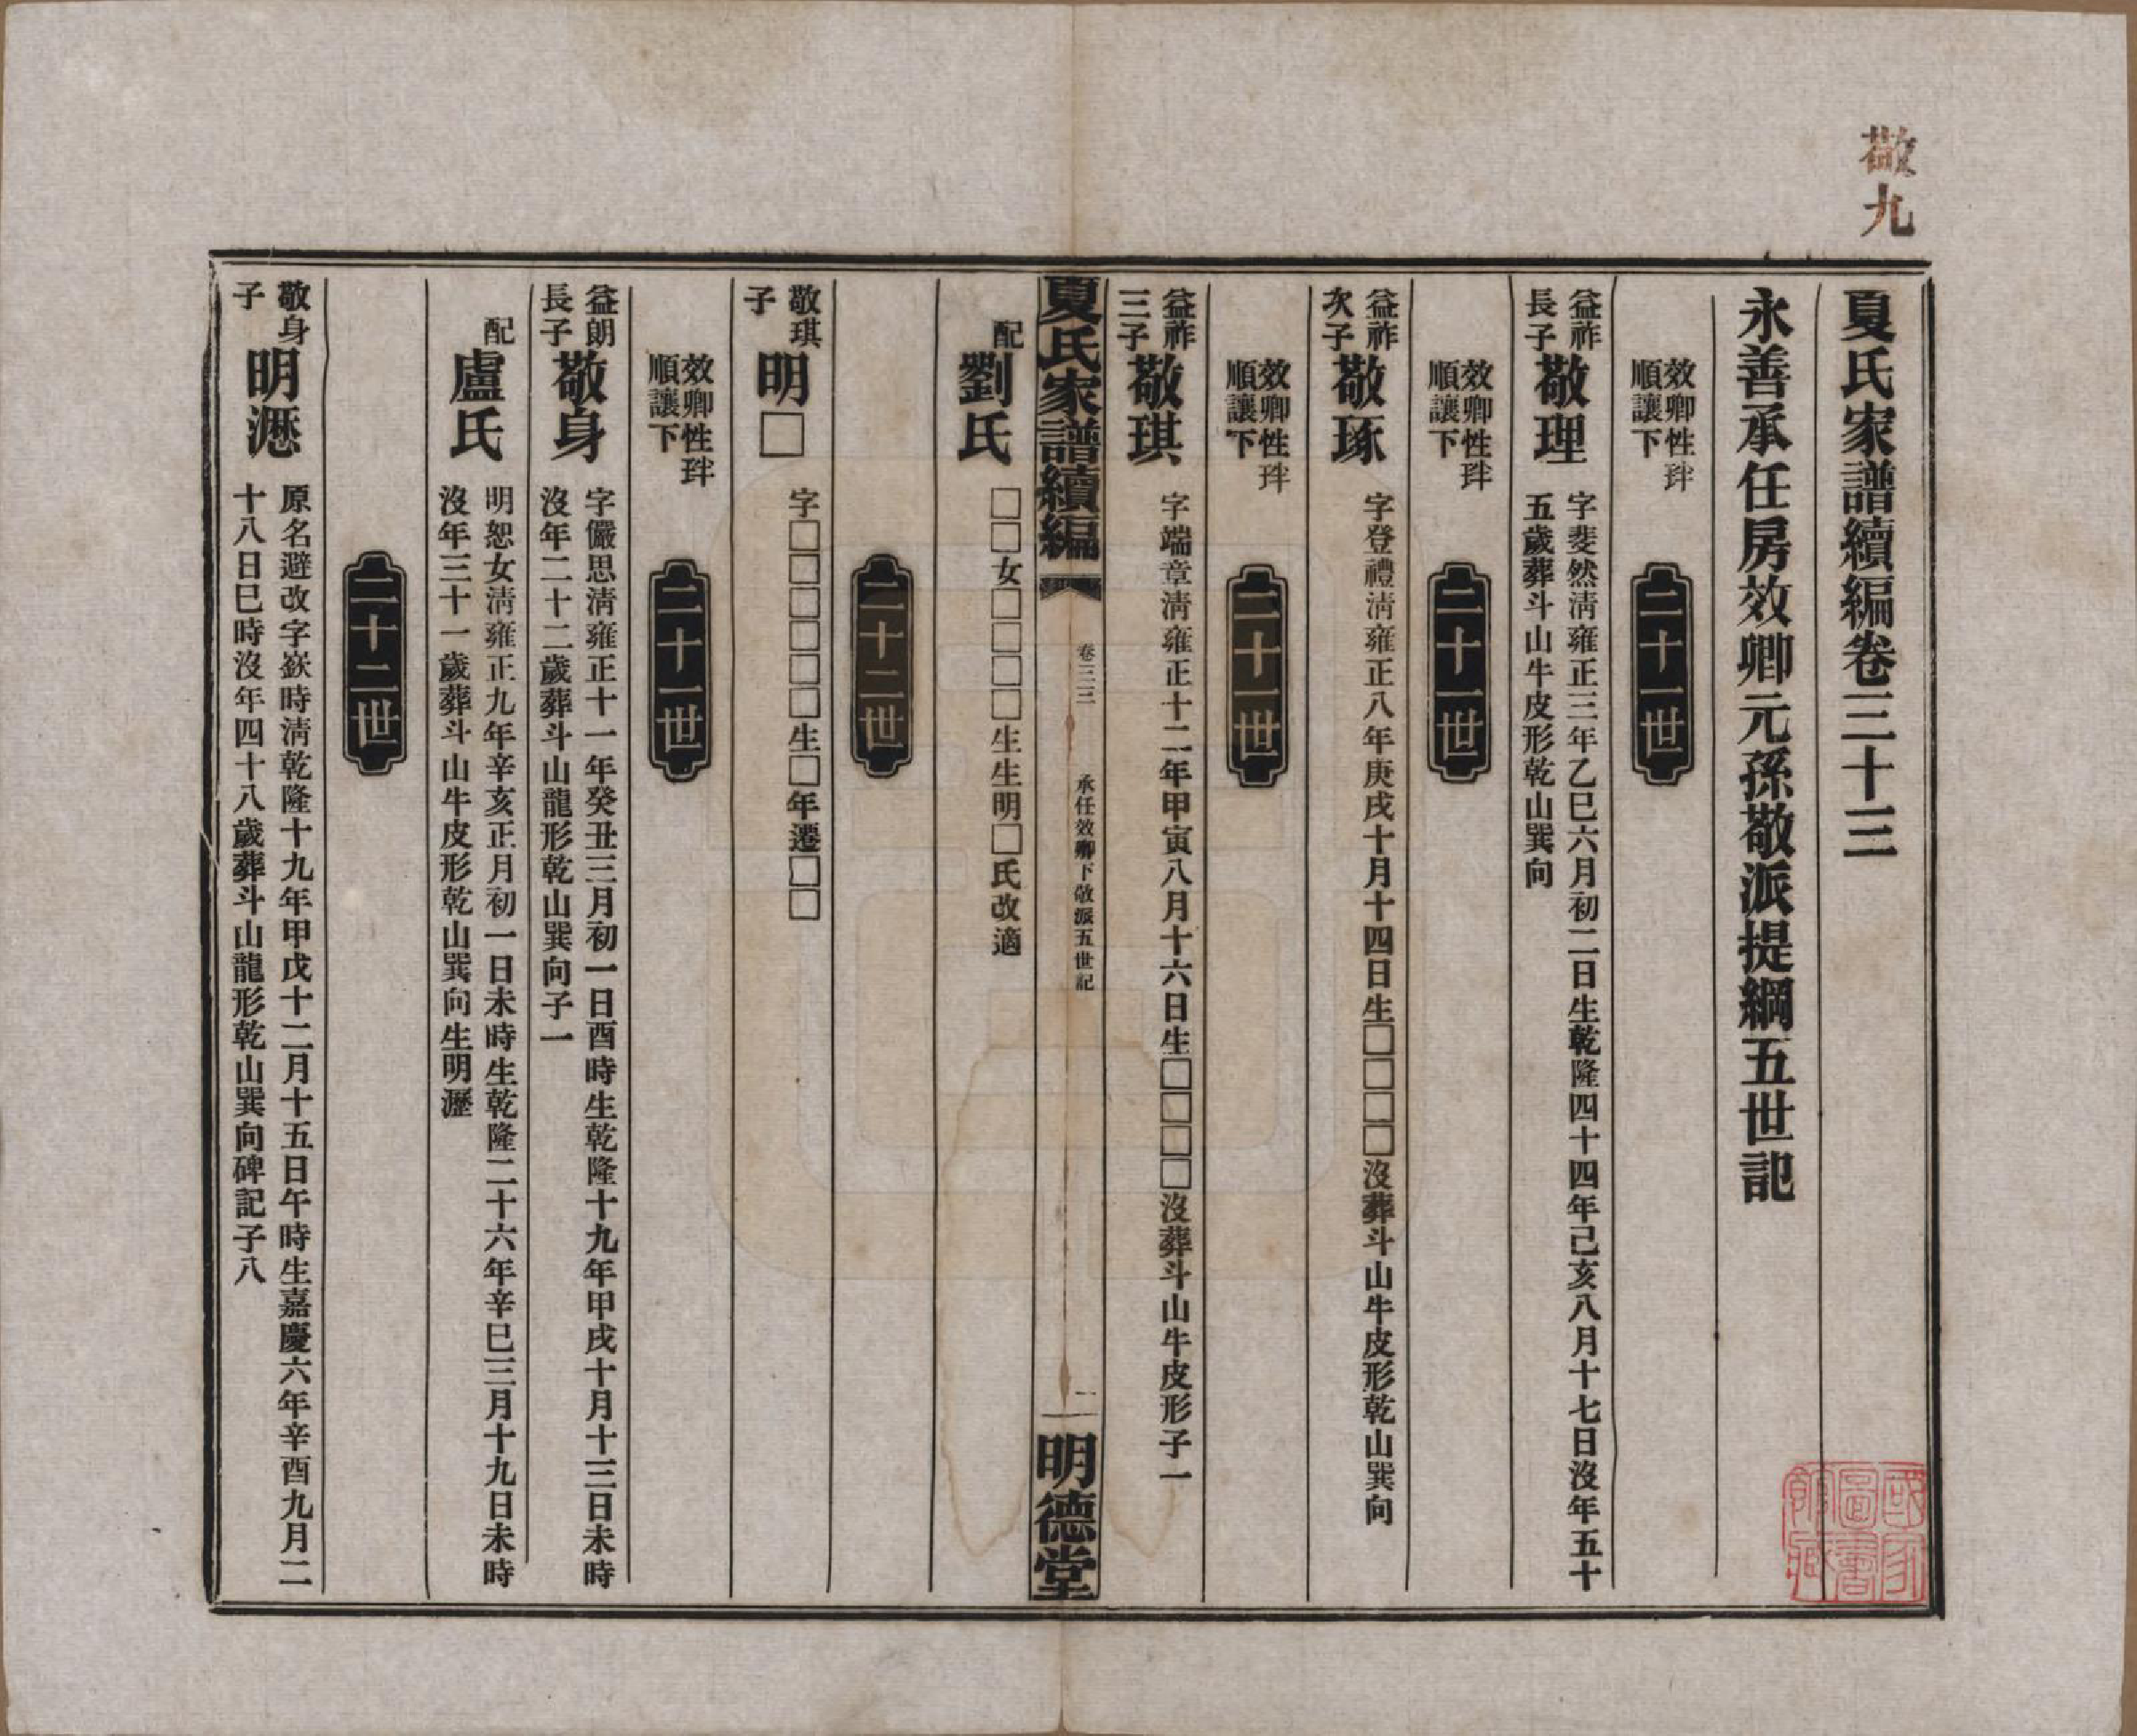 敬九
夏氏家譜續編卷三十三
永善承任房效卿元孫敬派提綱五世記
效卿性玤
順讓下
二十一世
益祚
長子
敬理
字斐然淸雍正三年乙巳六月初二日生乾隆四十四年己亥八月十七日沒年五十
五歲葬斗山牛皮形乾山巽向
效卿性玤
順讓下
二十一世
益祚
次子
敬琢
字登禮淸雍正八年庚戌十月十四日生□□□□沒葬斗山牛皮形乾山巽向
效卿性玤
順讓下
二十一世
益祚
三子
敬琪
字端章淸雍正十二年甲寅八月十六日生□□□□沒葬斗山牛皮形子一
夏氏家譜續編
卷三三
承任效卿下敬派五世記
一
明德堂
配
劉氏
□□女□□□□生生明□氏改適
二十二世
敬琪
子
明□
字□□□□□□生□年遷□□
效卿性玤
順讓下
二十一世
益朗
長子
敬身
字儼思淸雍正十一年癸丑三月初一日酉時生乾隆十九年甲戌十月十三日未時
沒年二十二歲葬斗山龍形乾山巽向子一
配
盧氏
明恕女淸雍正九年辛亥正月初一日未時生乾隆二十六年辛巳三月十九日未時
沒年三十一歲葬斗山牛皮形乾山巽向生明瀝
二十二世
敬身
子
明瀝
原名避改字嶔時淸乾隆十九年甲戌十二月十五日午時生嘉慶六年辛酉九月二
十八日巳時沒年四十八歲葬斗山龍形乾山巽向碑記子八
國家圖書館藏